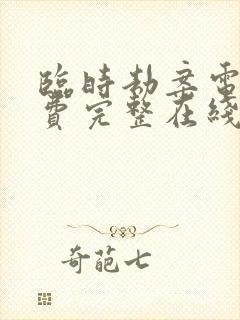 臨時劫案電
費完整在綫
奇葩七